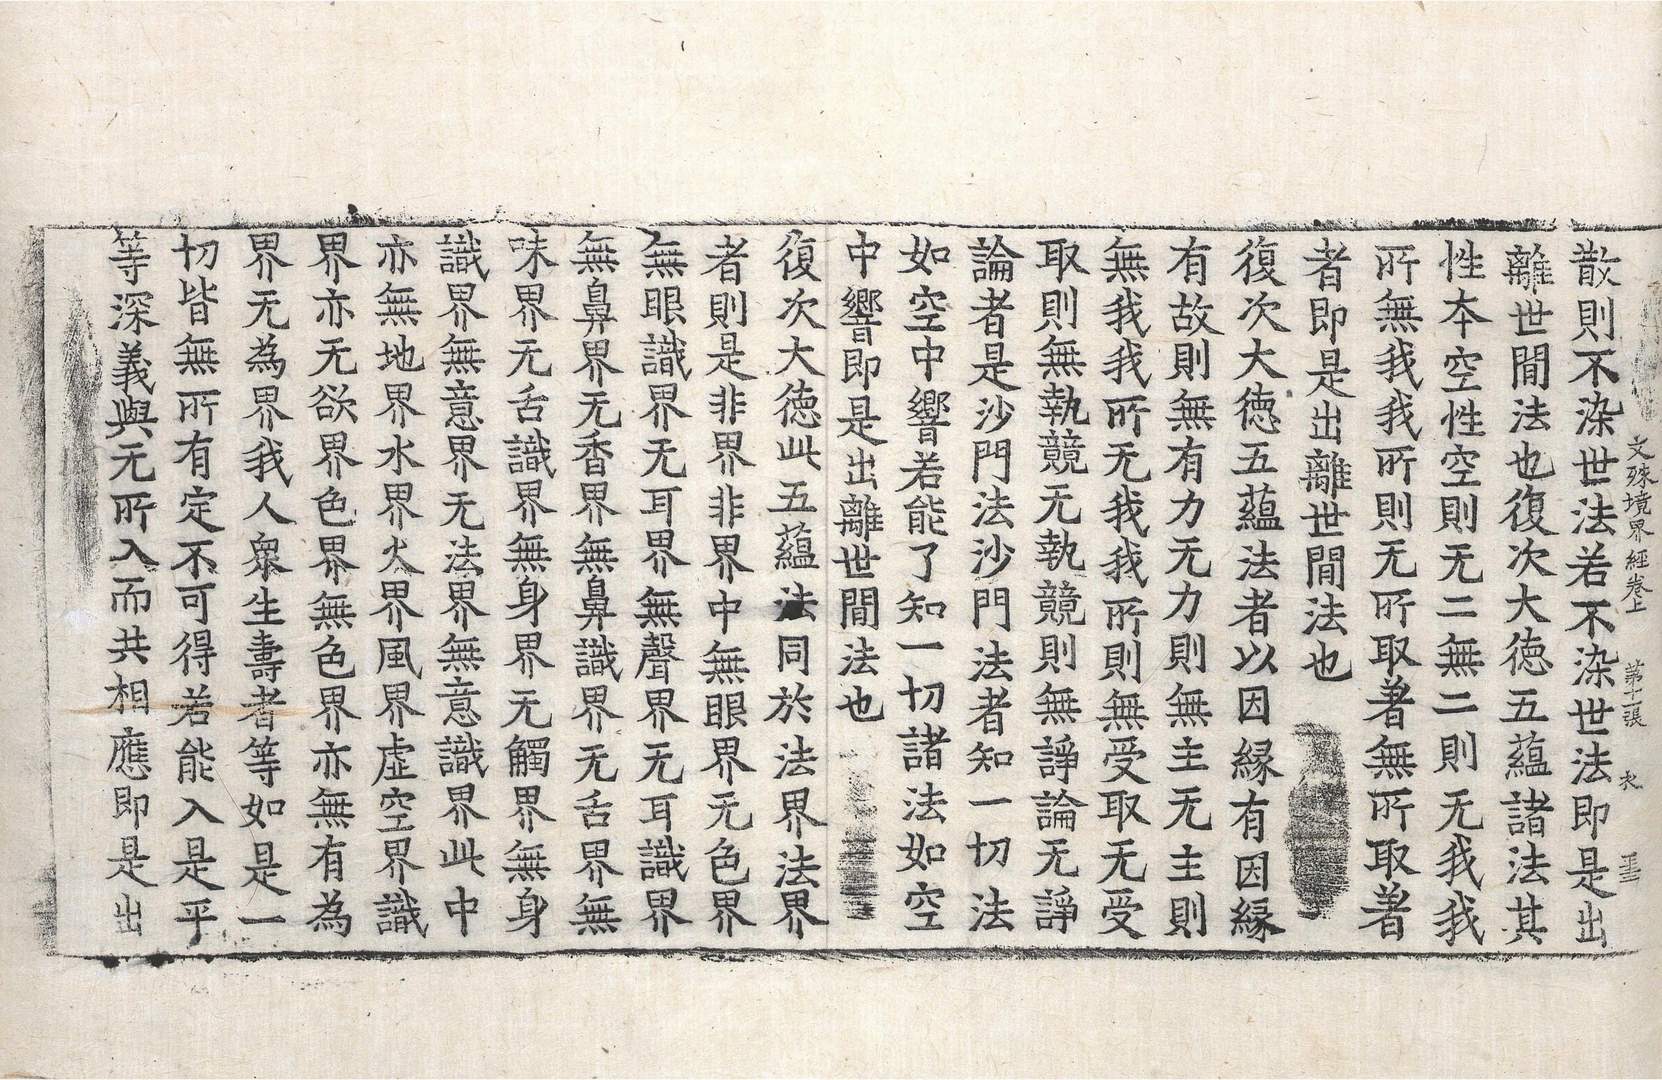 文殊境界經卷上 第十一張 衣
散則不染世法若不染世法即是出
離世間法也復次大徳五蘊諸法其
性本空性空則无二無二則无我我
所無我我所則无所取著無所取著
者即是出離世間法也
復次大徳五蘊法者以因縁有因縁
有故則無有力无力則無主无主則
無我我所无我我所則無受取无受
取則無執競无執競則無諍論无諍
論者是沙門法沙門法者知一切法
如空中響若能了知一切諸法如空
中響即是出離世間法也
復次大徳此五蘊法同於法界法界
者則是非界非界中無眼界无色界
無眼識界无耳界無聲界无耳識界
無鼻界无香界無鼻識界无舌界無
味界无舌識界無身界无觸界無身
識界無意界无法界無意識界此中
亦無地界水界火界風界虚空界識
界亦无欲界色界無色界亦無有為
界无為界我人衆生壽者等如是一
切皆無所有定不可得若能入是平
等深義與无所入而共相應即是出